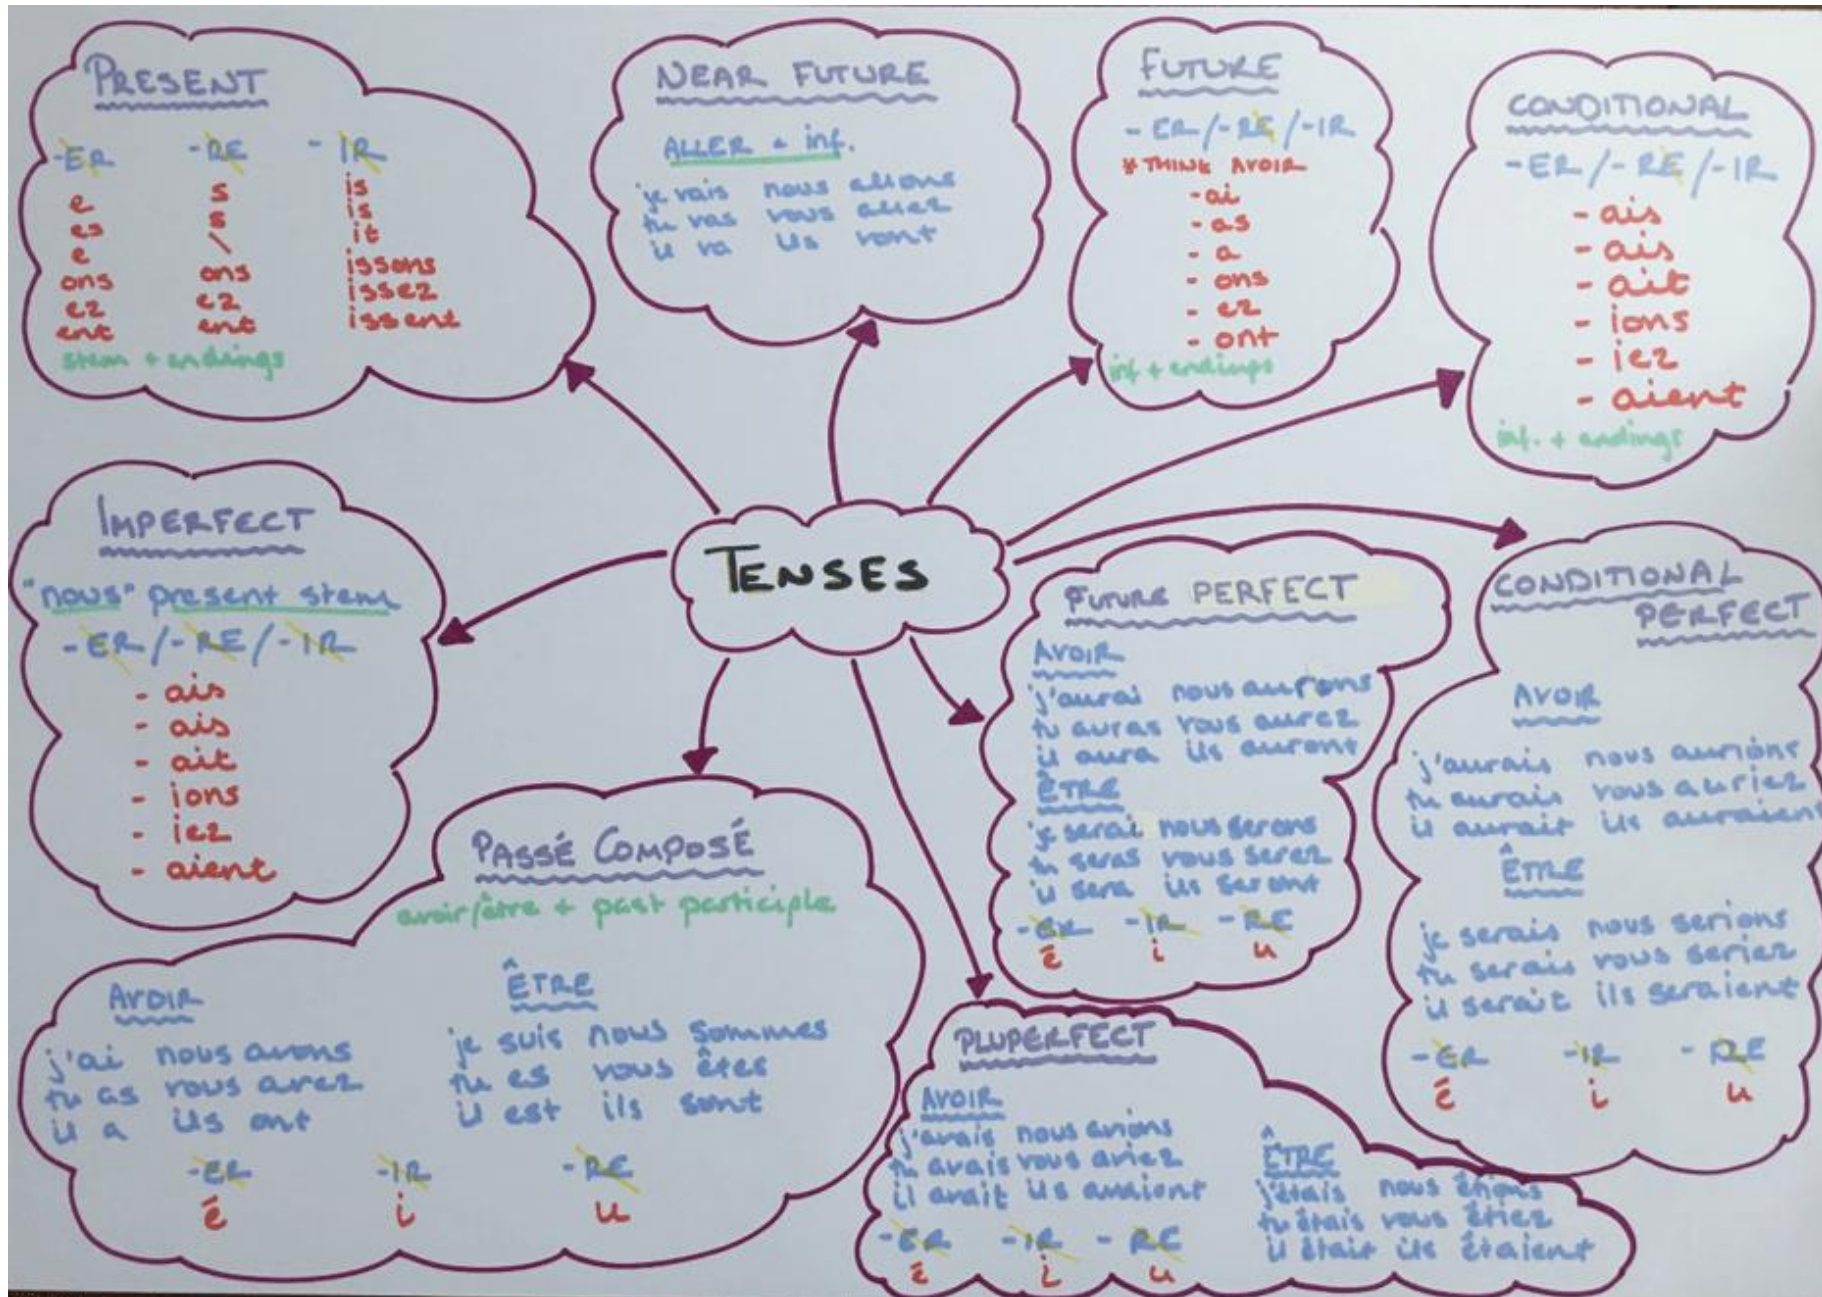 TENSES
PRESENT
-ER -RE -IR
e s is
es s is
e \ it
ons ons issons
ez ez issez
ent ent issent
stem + endings
NEAR FUTURE
ALLER + inf.
je vais nous allons
tu vas vous allez
il va ils vont
FUTURE
-ER/-RE/-IR
* THINK AVOIR
-ai
-as
-a
-ons
-ez
-ont
inf + endings
CONDITIONAL
-ER/-RE/-IR
-ais
-ais
-ait
-ions
-iez
-aient
inf. + endings
IMPERFECT
"nous" present stem
-ER/-RE/-IR
-ais
-ais
-ait
-ions
-iez
-aient
PASSÉ COMPOSÉ
avoir/être + past participle
AVOIR
j'ai nous avons
tu as vous avez
il a ils ont
ÊTRE
je suis nous sommes
tu es vous êtes
il est ils sont
-ER -IR -RE
é i u
FUTURE PERFECT
AVOIR
j'aurai nous aurons
tu auras vous aurez
il aura ils auront
ÊTRE
je serai nous serons
tu seras vous serez
il sera ils seront
-ER -IR -RE
é i u
CONDITIONAL
PERFECT
AVOIR
j'aurais nous aurions
tu aurais vous auriez
il aurait ils auraient
ÊTRE
je serais nous serions
tu serais vous seriez
il serait ils seraient
-ER -IR -RE
é i u
PLUPERFECT
AVOIR
j'avais nous avions
tu avais vous aviez
il avait ils avaient
ÊTRE
j'étais nous étions
tu étais vous étiez
il était ils étaient
-ER -IR -RE
é i u